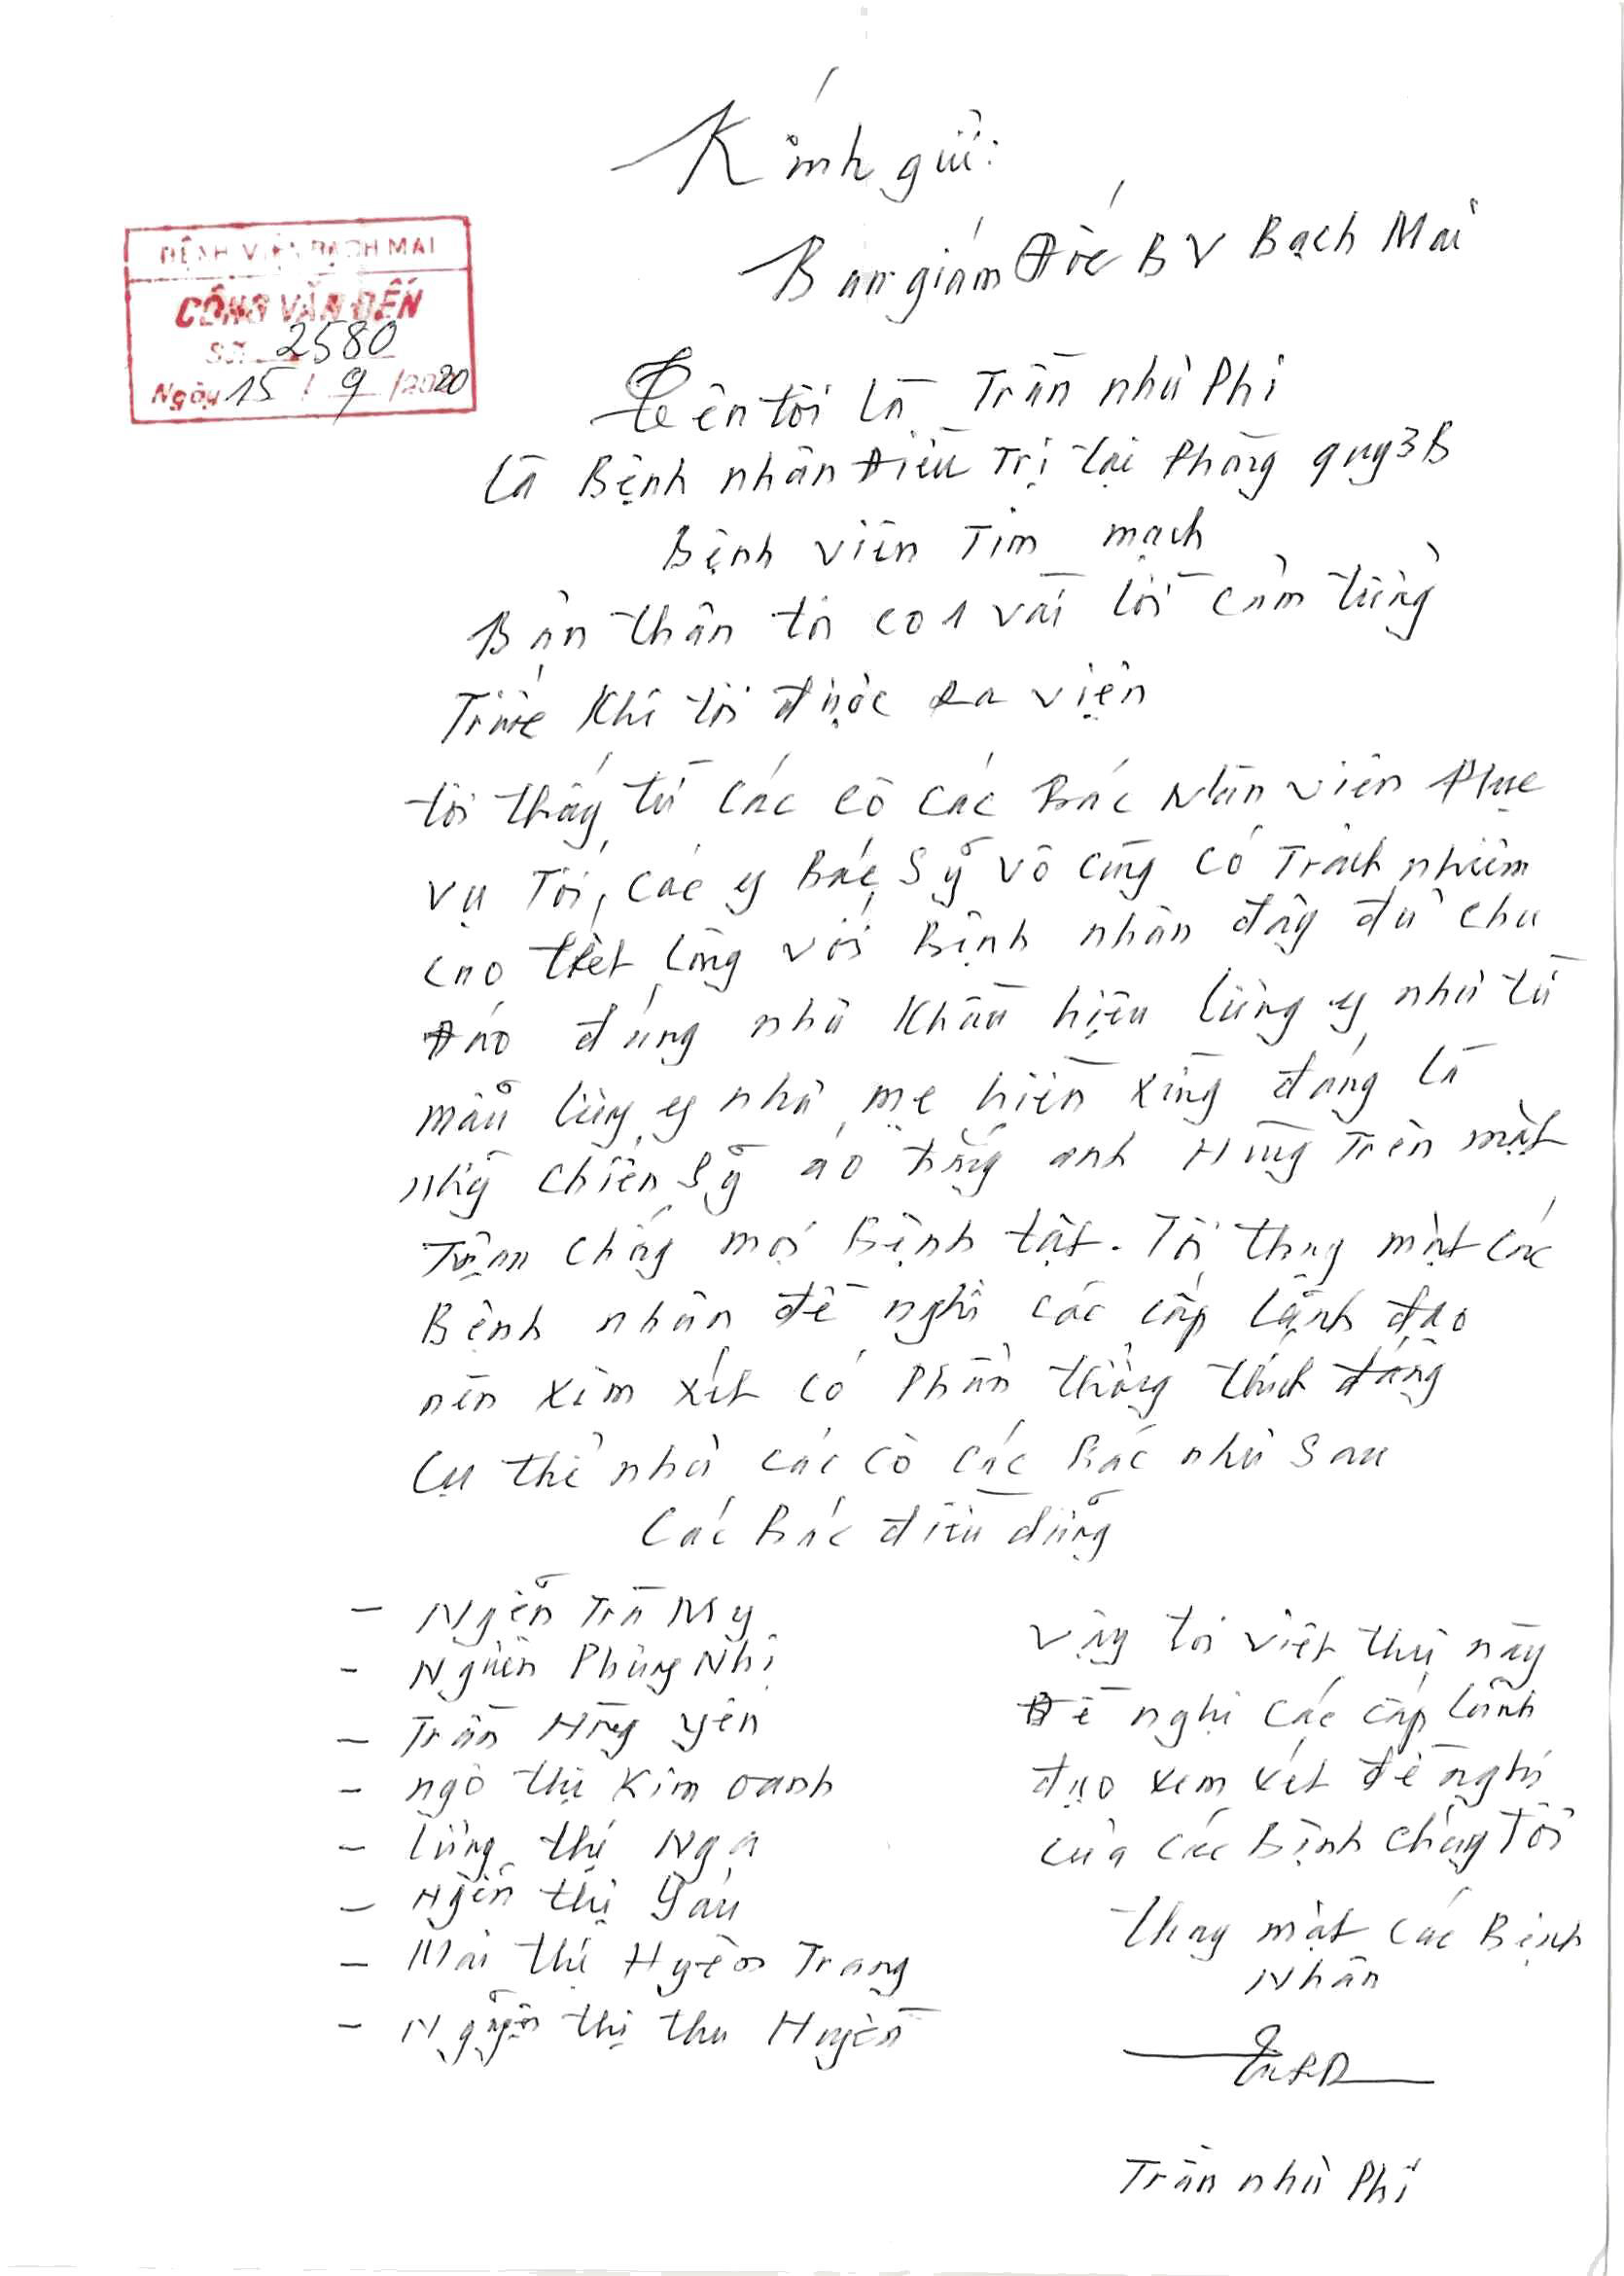 Kính gửi:
Ban giám Đốc BV Bạch Mai
BỆNH VIỆN BẠCH MAI
CÔNG VĂN ĐẾN
Số 2580
Ngày 15 / 9 / 2020
Tên tôi là Trần như Phi
là Bệnh nhân Điều Trị tại Phòng quy3B
Bệnh viên Tim mạch
Bản thân tôi co 1 vài lời cảm tưởng
Trước khi tôi được Ra viện
tôi thấy từ các cô các Bác Nhân viên Phục
vụ Tới, các y Bác Sỹ vô cùng có Trách nhiêm
cao hết lòng với Bệnh nhân đầy đủ chu
Đáo đúng như khẩu hiệu lương y như từ
mẫu lương y như mẹ hiền xứng đáng là
những chiến sỹ áo trắng anh Hùng Trên mặt
Trận chống mọi Bệnh tật. Tôi thay mặt các
Bệnh nhân đề nghị các cấp lãnh đạo
nên xem xét có Phần thưởng thích đáng
cụ thể như các cô các Bác như Sau
Các Bác điều dưỡng
- Nguyễn Trà My
- Nguyễn Phương Nhi
- Trần Hồng yên
- ngô thị Kim oanh
- lương thị Nga
- Nguyễn thị Sáu
- Mai thị Huyền Trang
- Nguyễn thị thu Huyền
Vậy tôi viết thư này
Đề nghị các cấp lãnh
đạo xem xét đề nghị
của các Bệnh chúng Tôi
thay mặt các Bệnh
Nhân
Trần như Phi